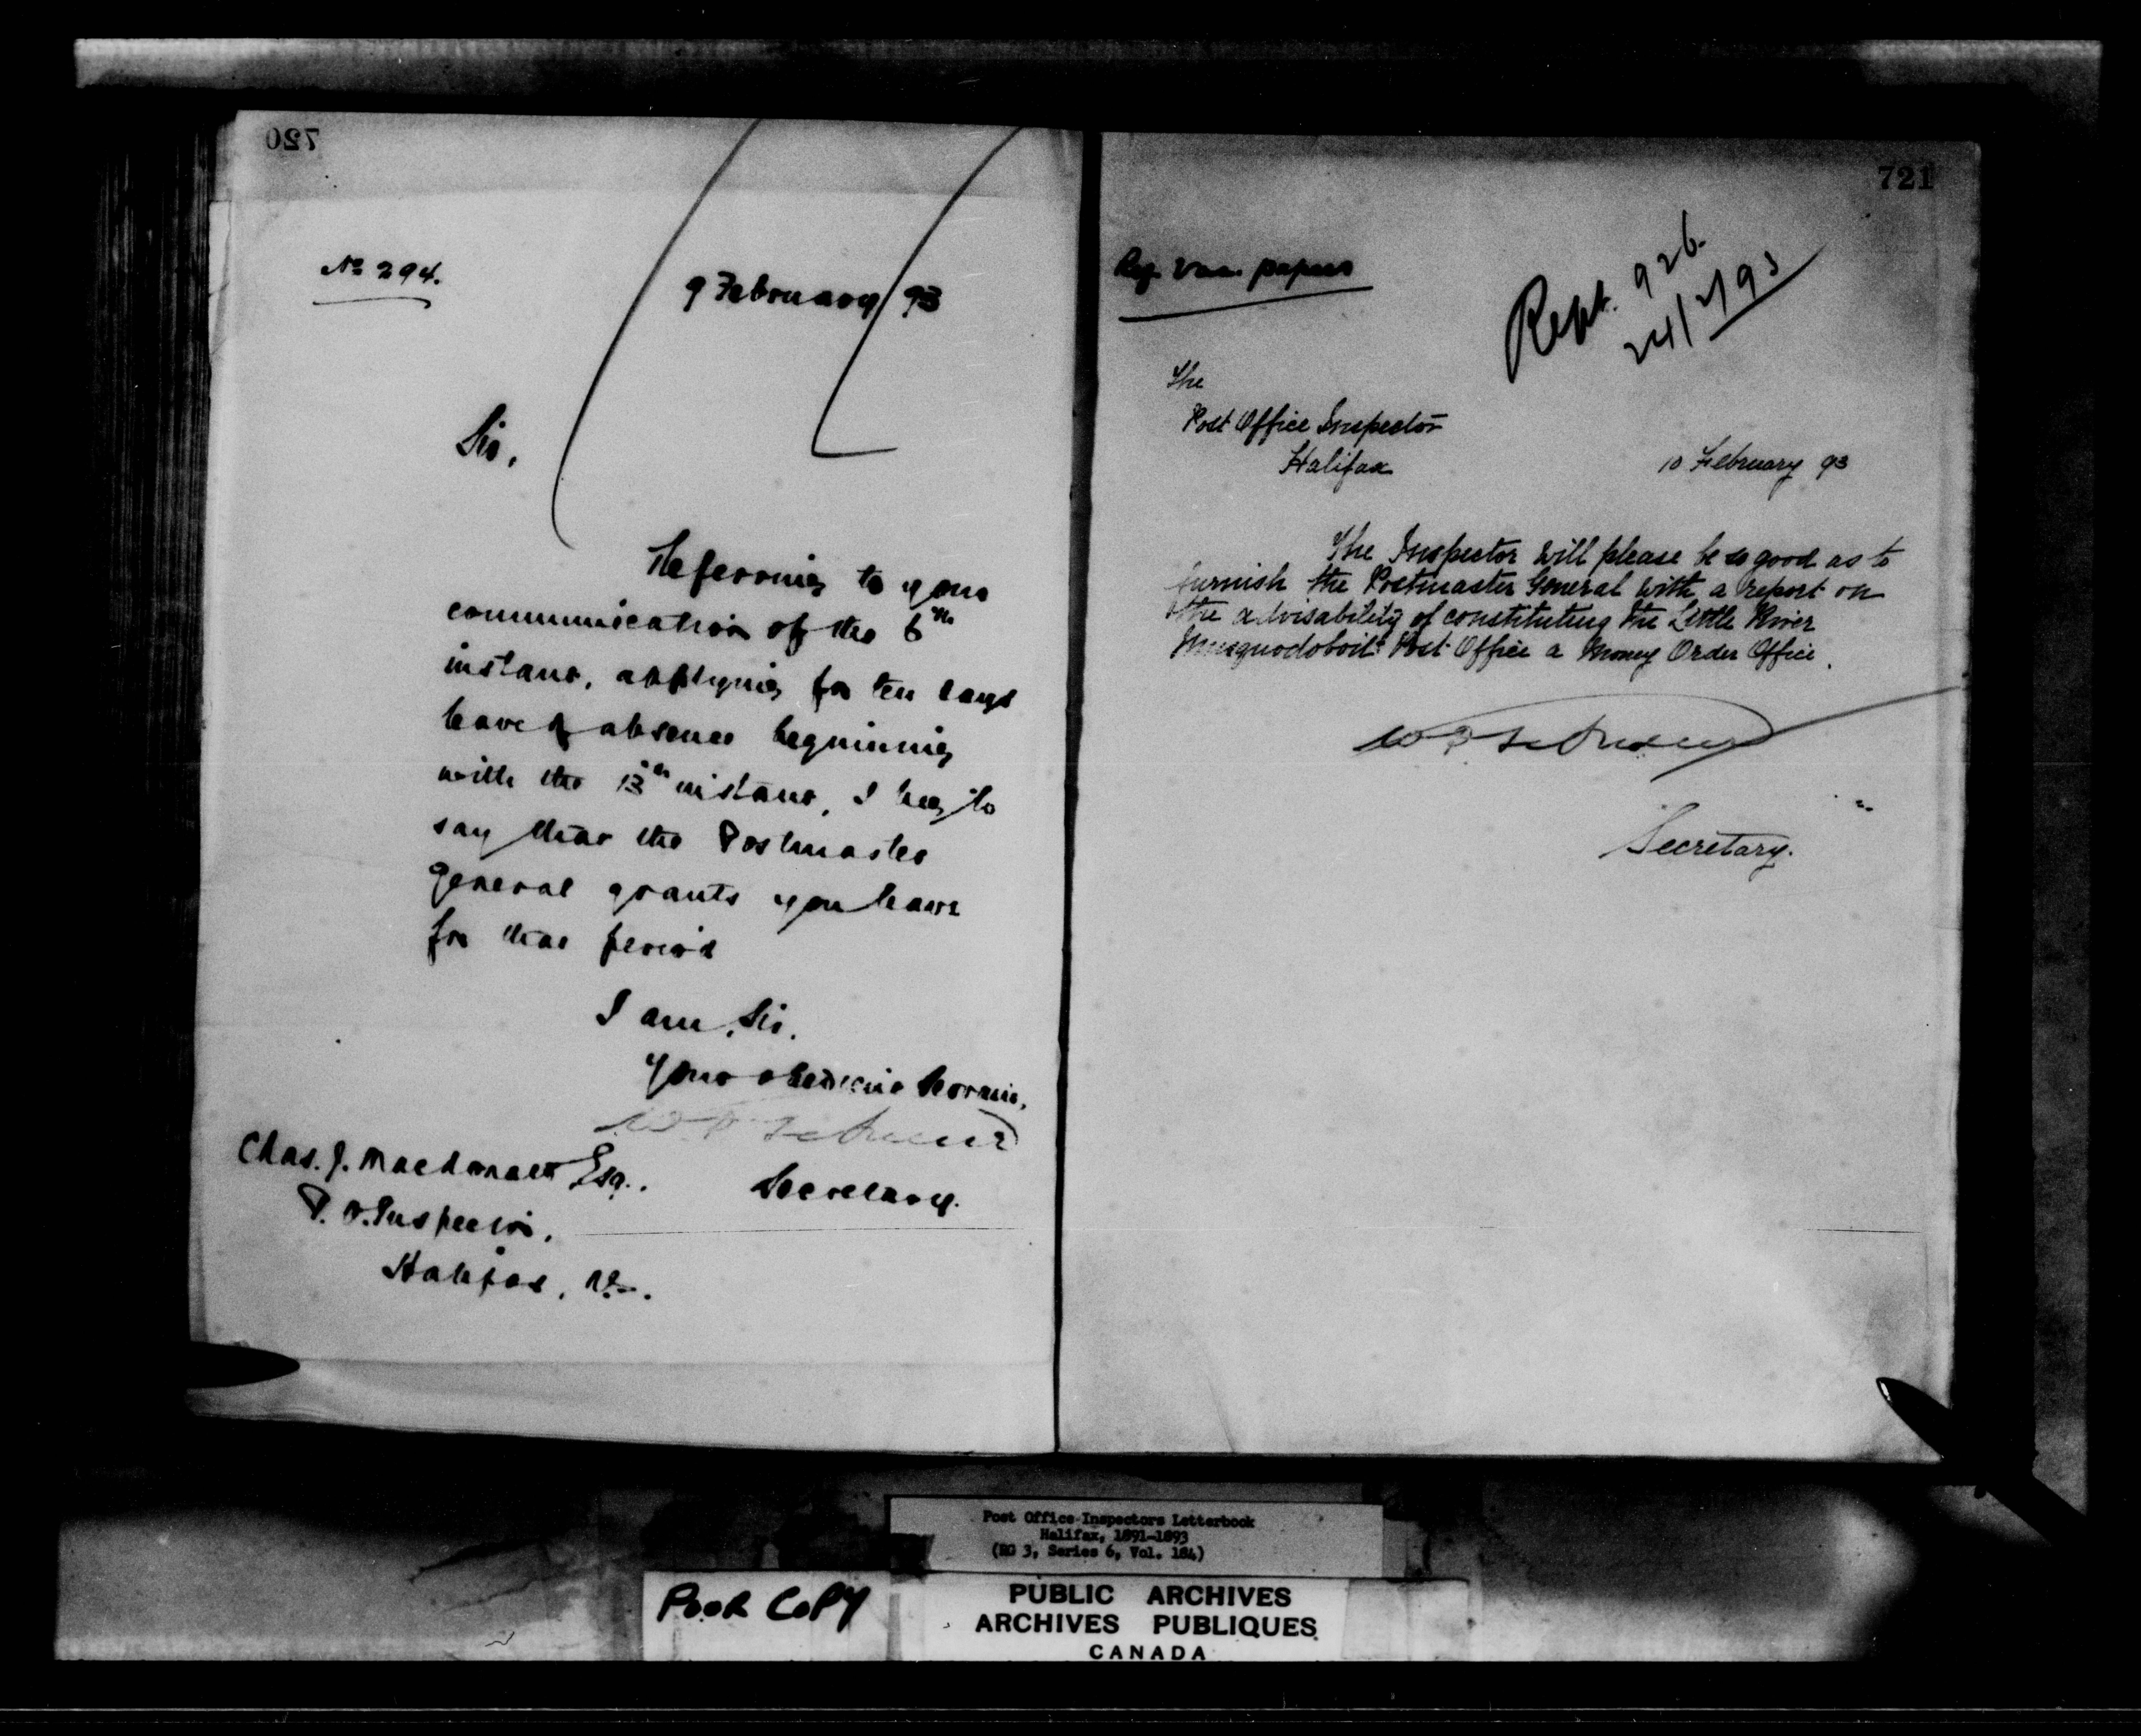 720
No 294.
9 February 93
Sir,
Referring to your
communication of the 6th
instant, applying for ten days
leave of absence beginning
with the 13th instant, I beg to
say that the Postmaster
General grants you leave
for that period
I am, Sir,
Your obedient Servant,
Secretary.
Chas. J. Macdonald Esq.
P. O. Inspector,
Halifax, N.S.
721
papers
Rept. 926.
24/2/93
The
Post Office Inspector
Halifax
10 February 93
The Inspector will please be so good as to
furnish the Postmaster General with a report on
the advisability of constituting the Little River
Musquodoboit Post Office a Money Order Office.
Secretary.
Post Office Inspectors Letterbook
Halifax, 1891-1893
(RG 3, Series 6, Vol. 184)
POOR COPY
PUBLIC ARCHIVES
ARCHIVES PUBLIQUES
CANADA